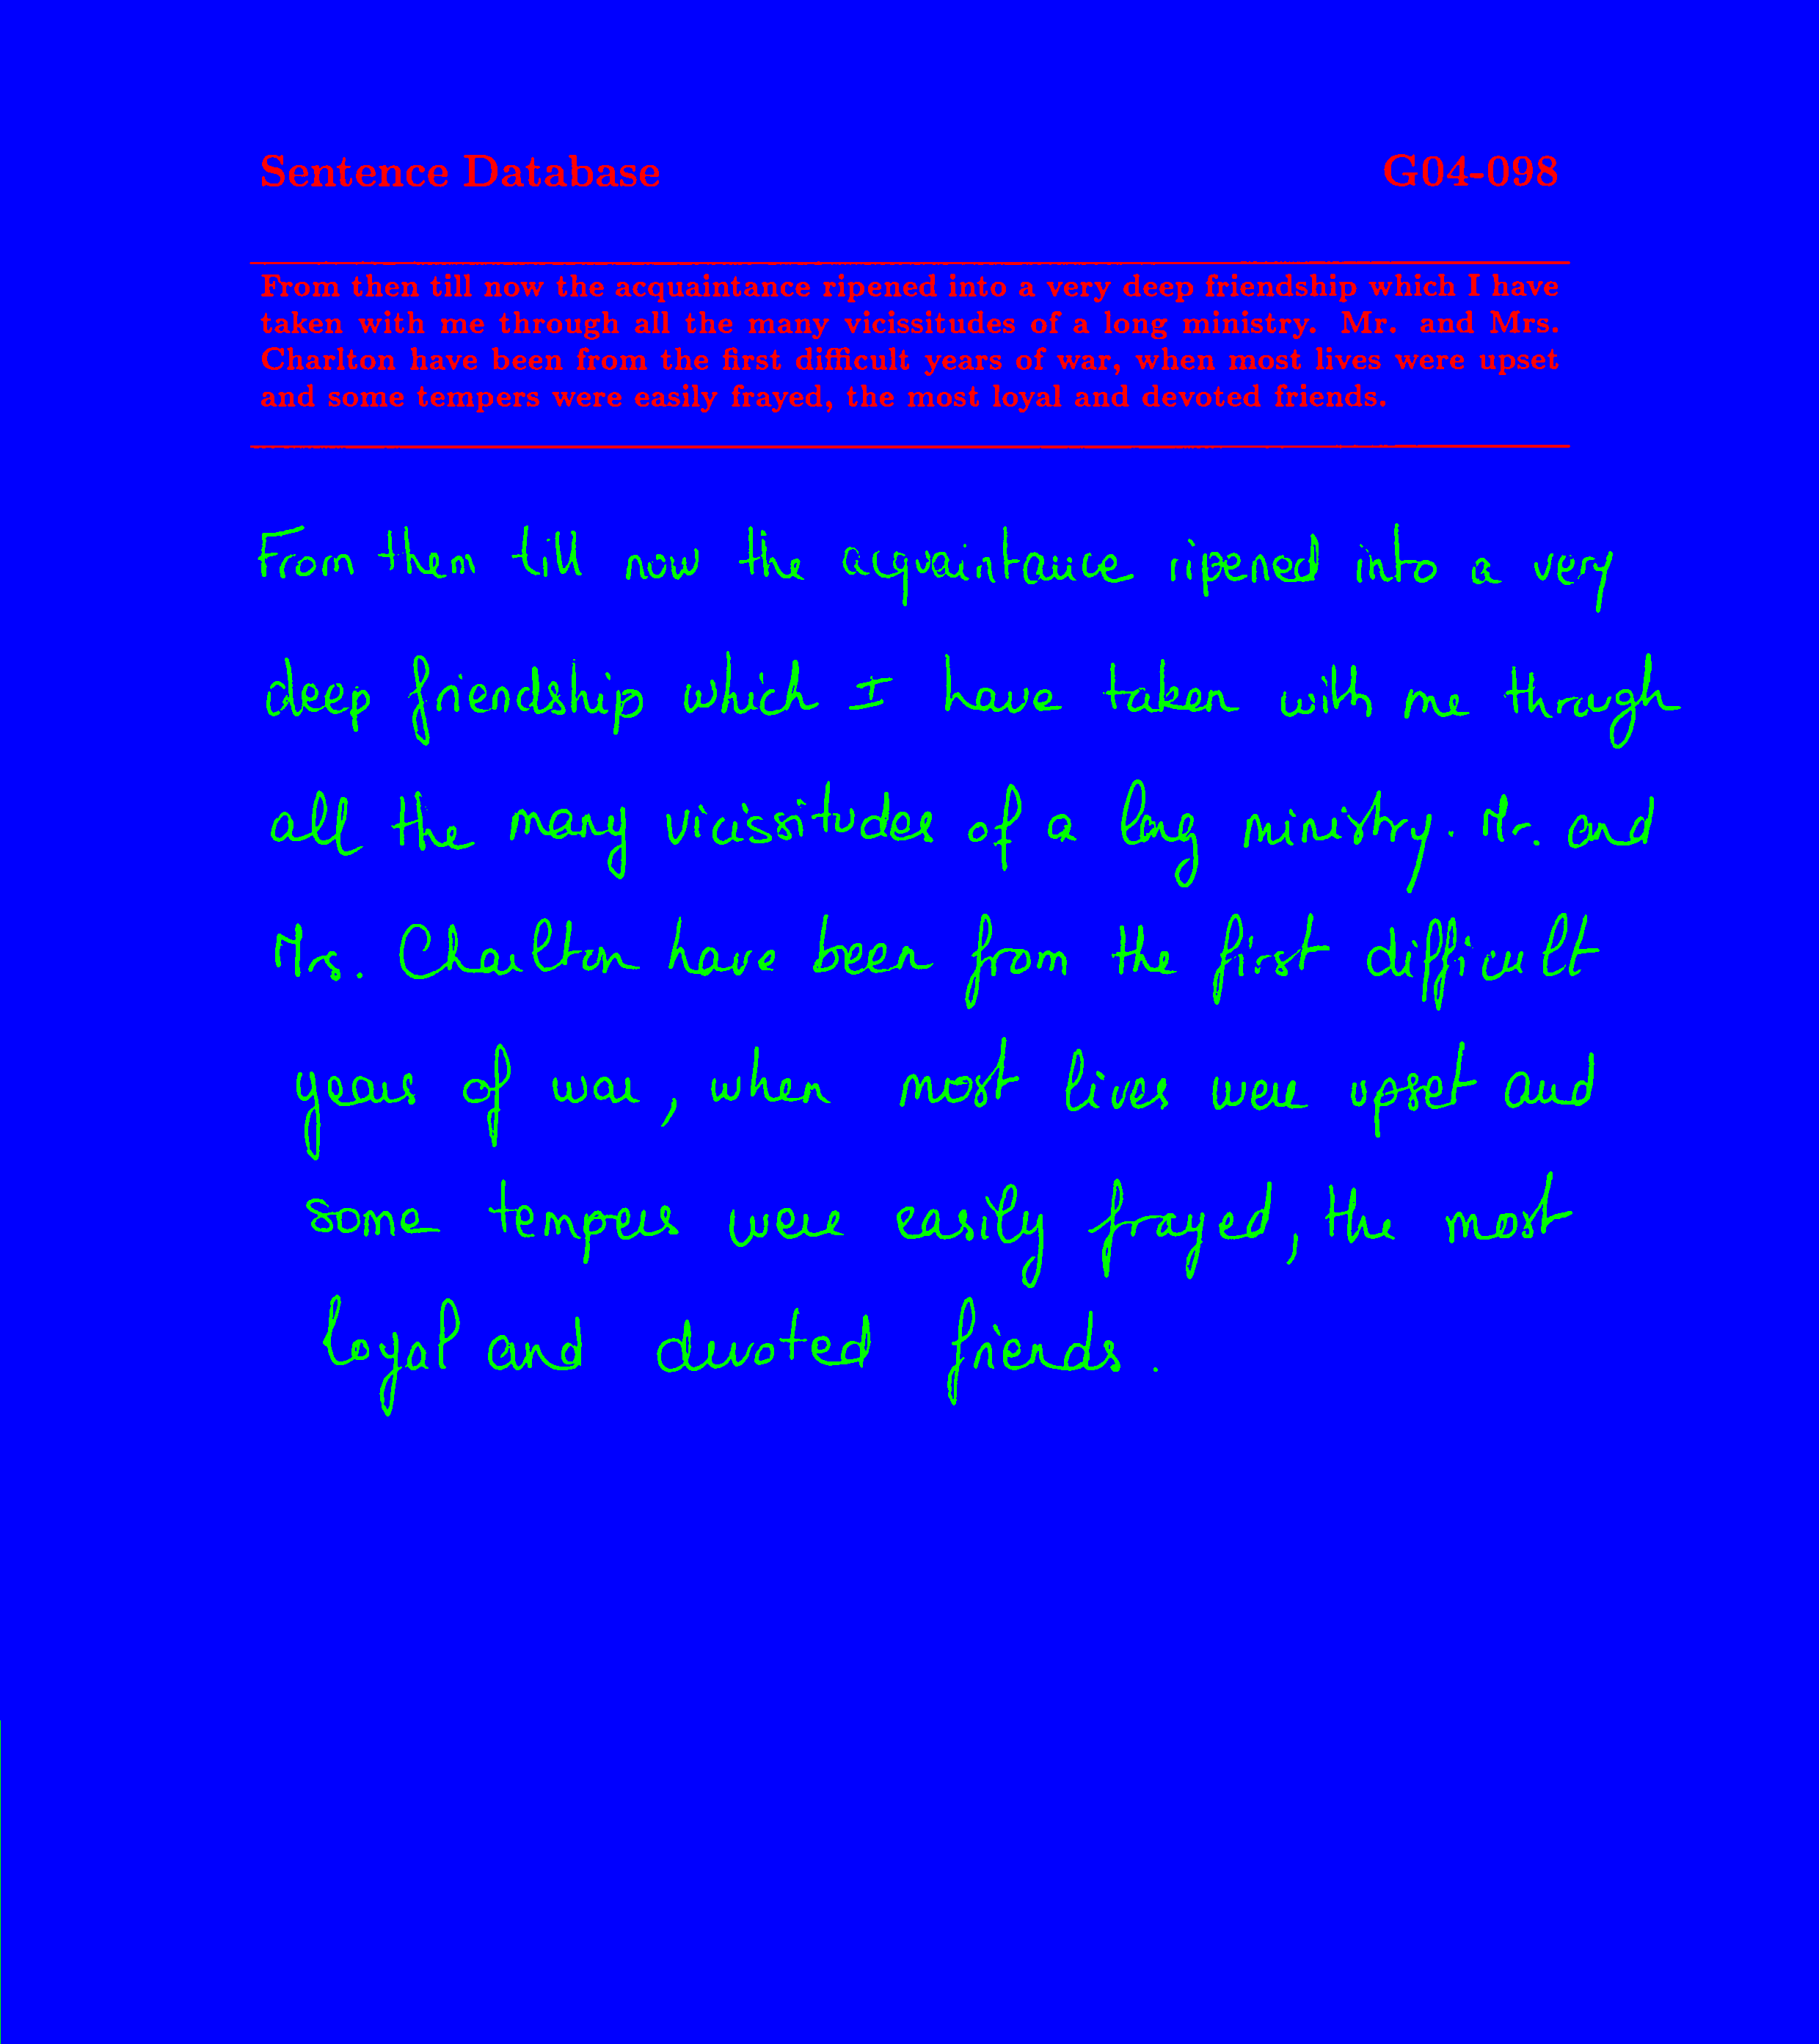 Sentence Database G04-098
From then till now the acquaintance ripened into a very deep friendship which I have
taken with me through all the many vicissitudes of a long ministry. Mr. and Mrs.
Charlton have been from the first difficult years of war, when most lives were upset
and some tempers were easily frayed, the most loyal and devoted friends.
From them till now the acquaintance ripened into a very
deep friendship which I have taken with me through
all the many vicissitudes of a long ministry. Mr. and
Mrs. Charlton have been from the first difficult
years of war, when most lives were upset and
some tempers were easily frayed, the most
loyal and devoted friends.